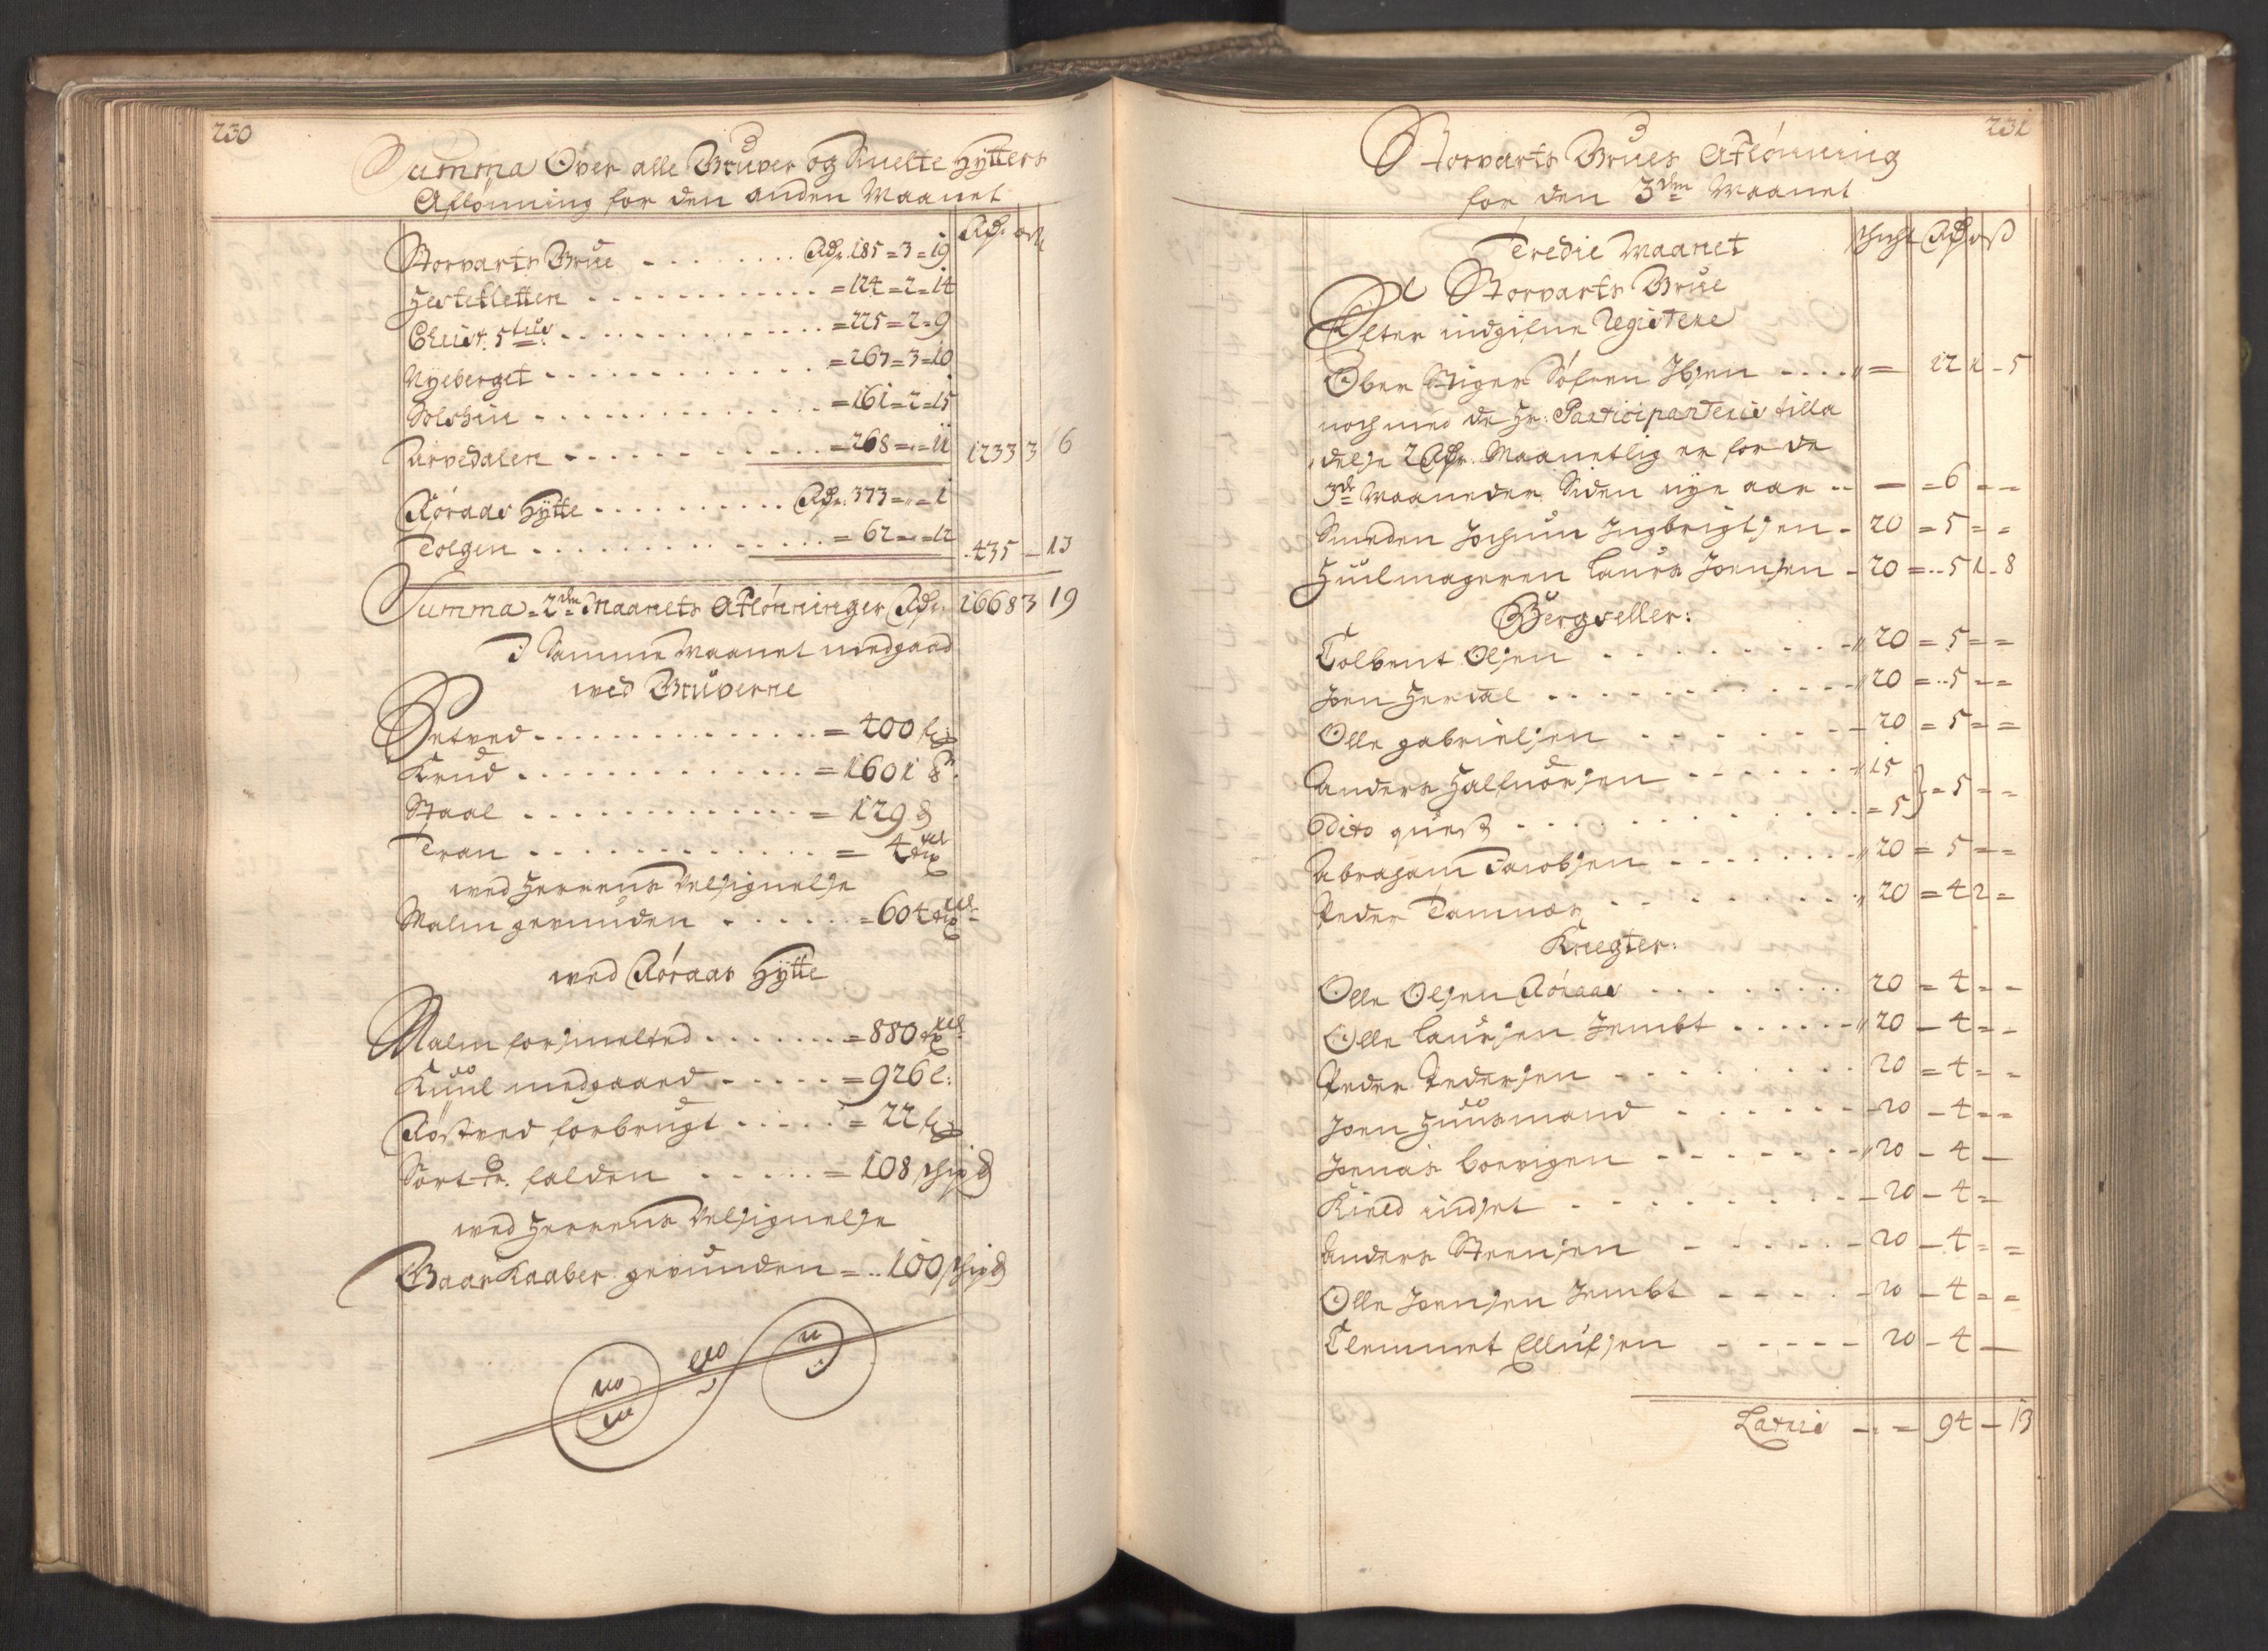 230
Summa Over alle Gruver og Smelte Hÿtters
Aflönning for den anden Maanet
Rdr. ort
Storvarts Grue . . . . . . . . Rdr. 185 = 3 = 19
Hestekletten . . . . . . . . . . . . = 124 = 2 = 14
Christ: 5tus . . . . . . . . . . . . . = 225 = 2 = 9
Nÿeberget . . . . . . . . . . . . = 267 = 3 = 10
Solskin . . . . . . . . . . . . . = 161 = 2 = 15
Arvedalen . . . . . . . . . . . . = 268 = „ = 11 1233 3 6
Röraas Hÿtte . . . . . . . . . . Rdr. 373 = „ = 1
Tolgen . . . . . . . . . . . . . = 62 = „ = 12 435 – 13
Summa 2den Maanets Aflönninger Rdr. 1668 3 19
I Samme Maanet medgaad
wed Gruverne
Setved . . . . . . . . . . . . . . = 400 f
Krud . . . . . . . . . . . . . = 1601 ℔
Staal . . . . . . . . . . . . . = 129 ℔
Tran . . . . . . . . . . . . . = 4
wed Herrens Velsignelse
Malm gevunden . . . . . . = 604
wed Röraas Hÿtte
Malm forsmelted . . . . . . . = 880
Kuul medgaaed . . . . . = 926 l:
Röstved forbrugt . . . . . = 22 f
Sort falden . . . . . = 108 Skip℔
wed Herrens Velsignelse
Gaar Kaaber gevunden = . . 100 Skip℔
231
Storvarts Grues Aflönning
for den 3den Maanet
Tredie Maanet Schicht Rdr ort ß
Storvarts Grue
Efter indgifne Registere
Ober Stiger Söfren Ibsen . . . . „ = 12 1 – 5
noch med de Hr: Participanteris tilla
delse 2 Rdr. Maanetlig er for de
3de Maaneder Siden nÿe aar – – – = 6 = –
Smeden Jochum Ingbrigtsen – 20 = 5 = =
Huilmageren Laurs Joensen – 20 = . . 5 1 – 8
Bergveller:
Tolbent Olsen . . . . . . . . . – „ 20 = 5 = =
Joen Herdal . . . . . . . . . . – „ 20 = . . 5 – =
Olle gabrielsen . . . . . . . – 20 = 5 = =
Anders Halfuorsen . . . . . . – „ 15 } = 5 = =
Dito . . . . . . . . . . . . = 5
Abraham Jacobsen . . . . . . . – „ 20 = 5 = =
Peder Tamnæs . . . . . . . . . „ 20 = 4 2 =
Knegter:
Olle Olsen Röraas . . . . . . . . 20 = 4 = –
Olle Laursen Jembt . . . . . . – „ 20 – 4 = –
Peder Pedersen . . . . . . . . . 20 = 4 = –
Joen Huusmand . . . . . . – 20 – 4 = =
Jonas borrigen . . . . . . . – „ 20 – 4 –
Kield indset . . . . . . . . . . – 20 – 4 =
Anders Steensen . . . . . . – 20 – 4 = =
Olle Joensen Jembt – – – – – 20 – 4 = =
Clemmet Ellufsen – – – – – 20 – 4 –
Lateris – „ = 94 – 13